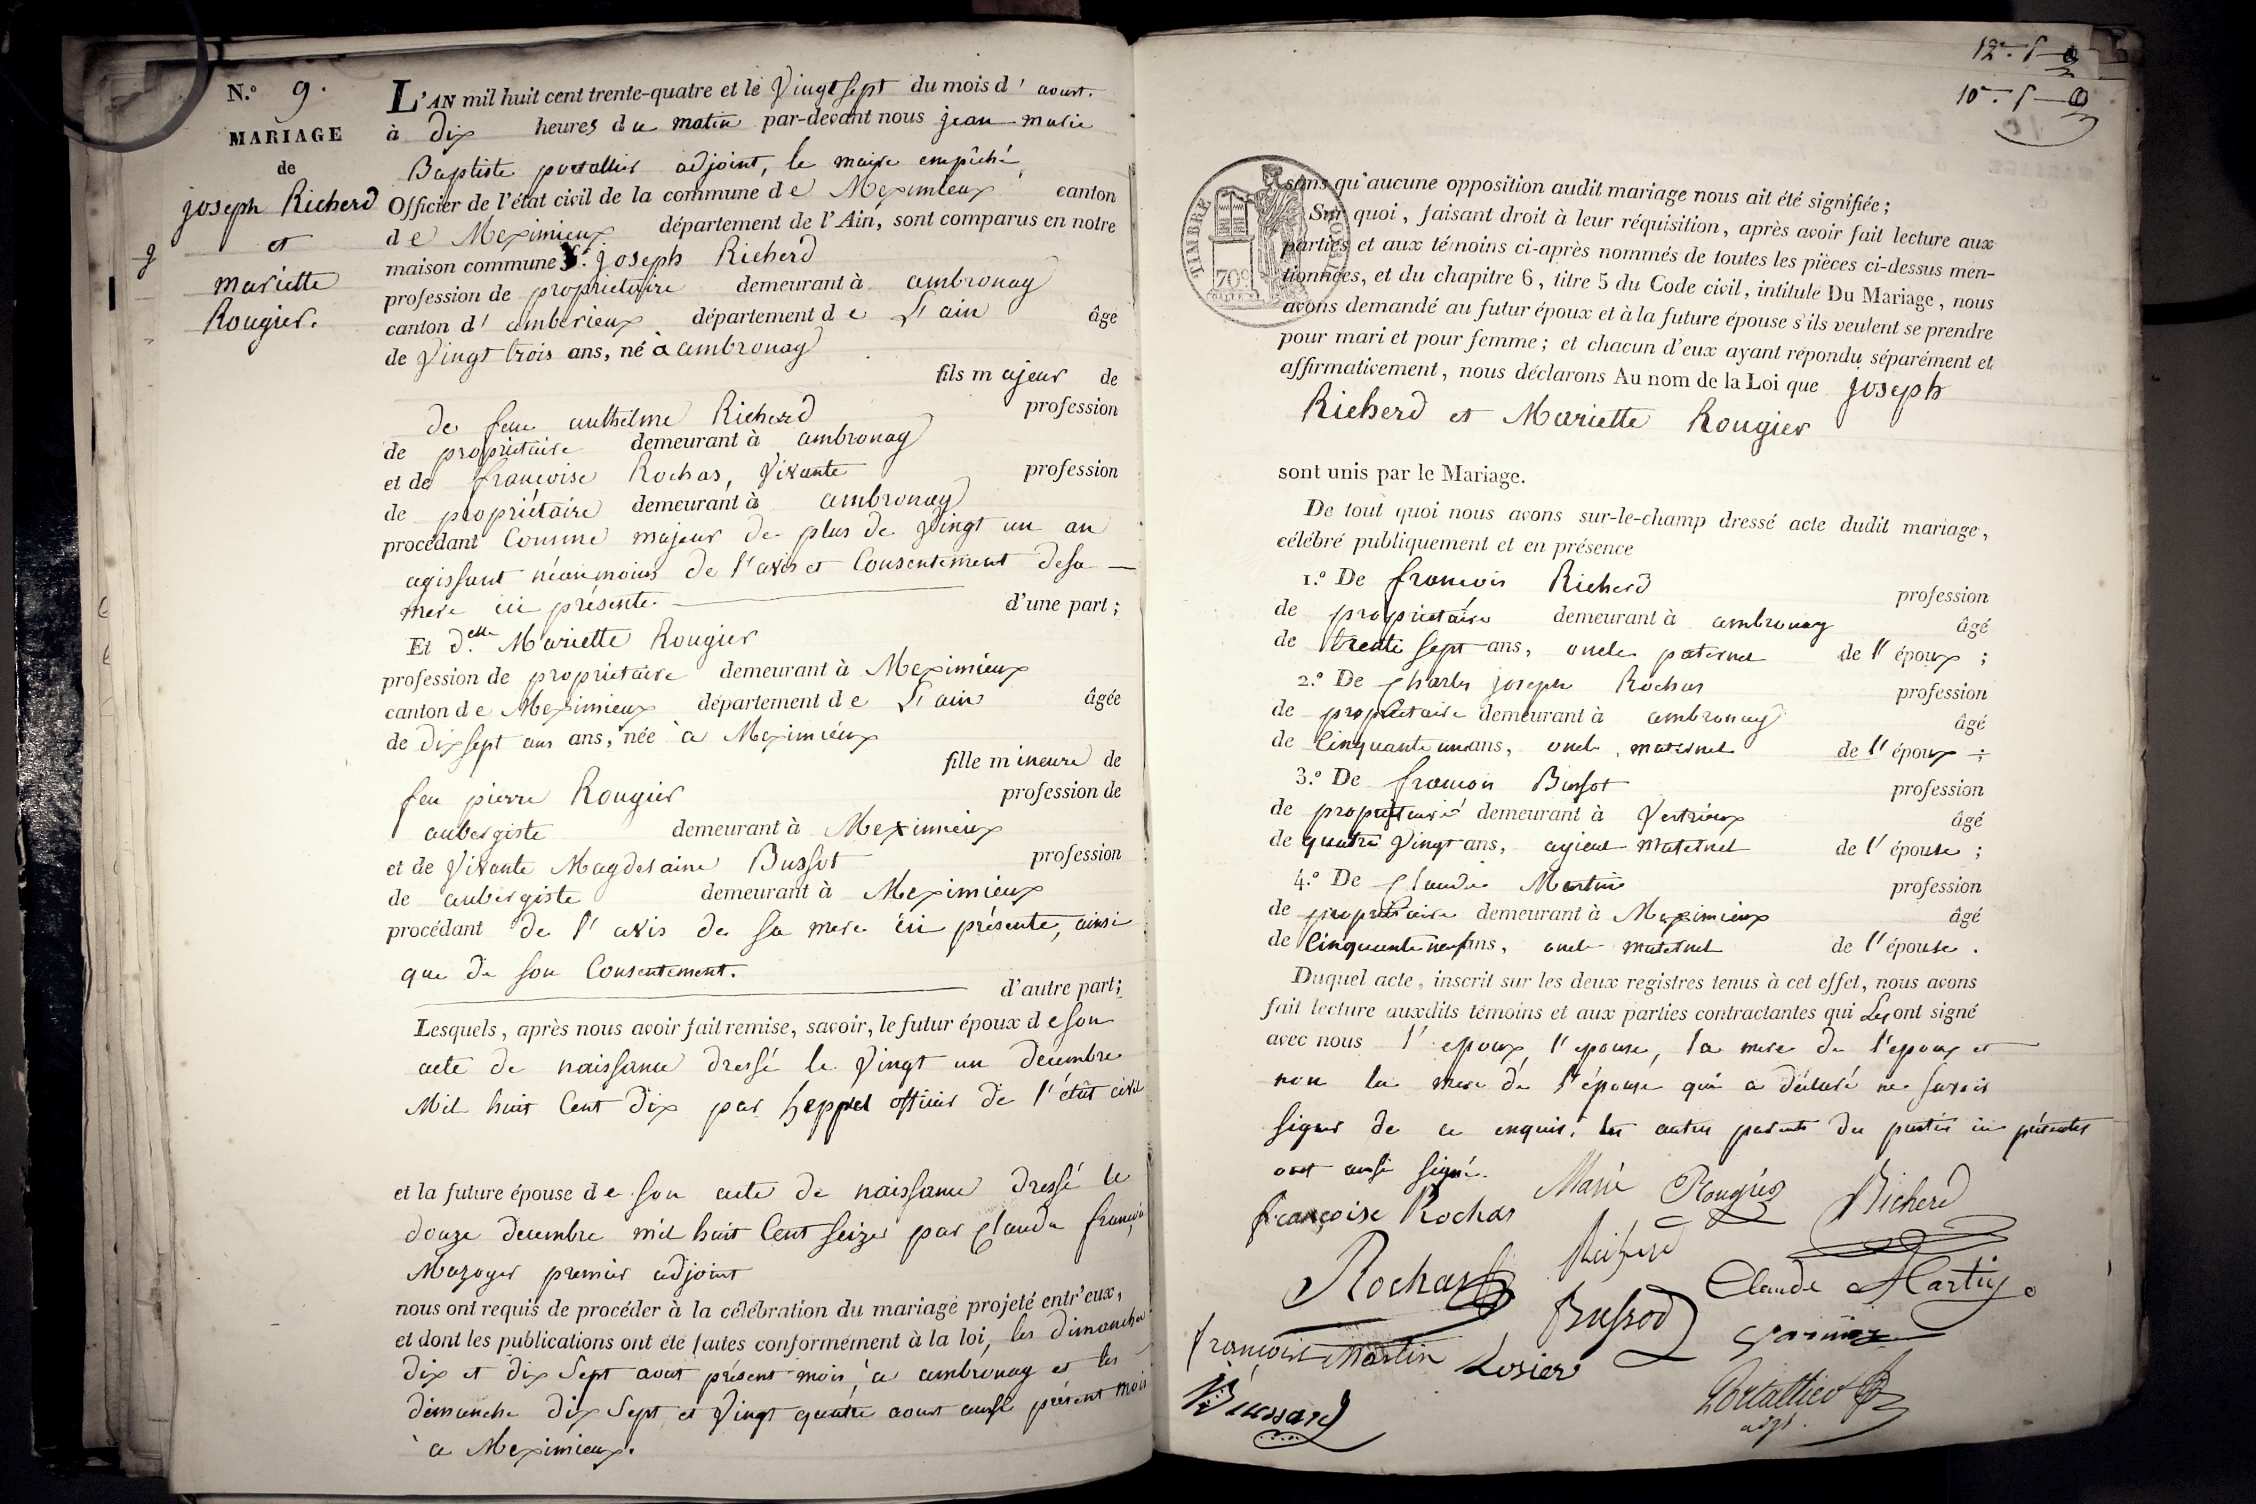 N.º 9.
MARIAGE
de
joseph Richerd
et
mariette
Rougier.
9
L'AN mil huit cent trente-quatre et le Vingt Sept du mois d' aoust.
à dix heures du matin par-devant nous jean marie
Baptiste portallier adjoint, le maire empêché
Officier de l'état civil de la commune de Meximieux canton
de Meximieux département de l'Ain, sont comparus en notre
maison commune Sr. joseph Richerd
profession de propriétaire demeurant à ambronay
canton d' amberieux département de L'ain âgé
de Vingt trois ans, né à ambronay
fils majeur de
de feu anthelme Richerd profession
de propriétaire demeurant à ambronay
et de françoise Rochas, Vivante profession
de propriétaire demeurant à ambronay
procédant Comme majeur de plus de Vingt un an
agissant néanmoins de l'avis et Consentement de sa
mere ici présente. d'une part;
Et d.elle Mariette Rougier
profession de propriétaire demeurant à Meximieux
canton de Meximieux département de L'ain âgée
de dix sept ans ans, née à Meximieux
fille mineure de
feu pierre Rougier profession de
aubergiste demeurant à Meximieux
et de Vivante Magdelaine Bussot profession
de aubergiste demeurant à Meximieux
procédant de l'avis de sa mere ici présente, ainsi
que de son Consentement.
d'autre part;
Lesquels, après nous avoir fait remise, savoir, le futur époux de son
acte de naissance dressé le Vingt un decembre
Mil huit Cent dix par heppel officier de l'état civil
et la future épouse de son acte de naissance dressé le
douze decembre mil huit Cent seize par Claude françois
Mazoyer premier adjoint
nous ont requis de procéder à la célébration du mariage projeté entr'eux,
et dont les publications ont été faites conformément à la loi, les dimanches
dix et dix Sept aout présent mois, à ambronay et les
dimanche dix Sept et Vingt quatre aoust aussi présent mois
à Meximieux.
12 10
TIMBRE ROYAL
70c
sans qu'aucune opposition audit mariage nous ait été signifiée;
Sur quoi, faisant droit à leur réquisition, après avoir fait lecture aux
parties et aux témoins ci-après nommés de toutes les pièces ci-dessus men-
tionnées, et du chapitre 6, titre 5 du Code civil, intitulé Du Mariage, nous
avons demandé au futur époux et à la future épouse s'ils veulent se prendre
pour mari et pour femme; et chacun d'eux ayant répondu séparément et
affirmativement, nous déclarons Au nom de la Loi que joseph
Richerd et Mariette Rougier
sont unis par le Mariage.
De tout quoi nous avons sur-le-champ dressé acte dudit mariage,
célébré publiquement et en présence
1.º De françois Richerd profession
de propriétaire demeurant à ambronay âgé
de trente sept ans, oncle paternel de l'époux;
2.º De Charles joseph Rochas profession
de propriétaire demeurant à ambronay âgé
de Cinquante un ans, oncle maternel de l'époux;
3.º De françois Bussot profession
de propriétaire demeurant à Vertrieux âgé
de quatre Vingt ans, ayieul maternel de l'épouse;
4.º De Claude Martin profession
de propriétaire demeurant à Meximieux âgé
de Cinquante neuf ans, oncle maternel de l'épouse.
Duquel acte, inscrit sur les deux registres tenus à cet effet, nous avons
fait lecture auxdits témoins et aux parties contractantes qui Les ont signé
avec nous l'epoux, l'epouse, la mere de l'epoux et
non la mere de l'épouse qui a déclaré ne savoir
signer de ce enquis. les autres parents des parties ici présentes
ont aussi signé.
françoise Rochas Marie Rougier Richerd
Rochas Richerd Claude Martin
françois Martin Losier Bussod
Portallier
adjt.